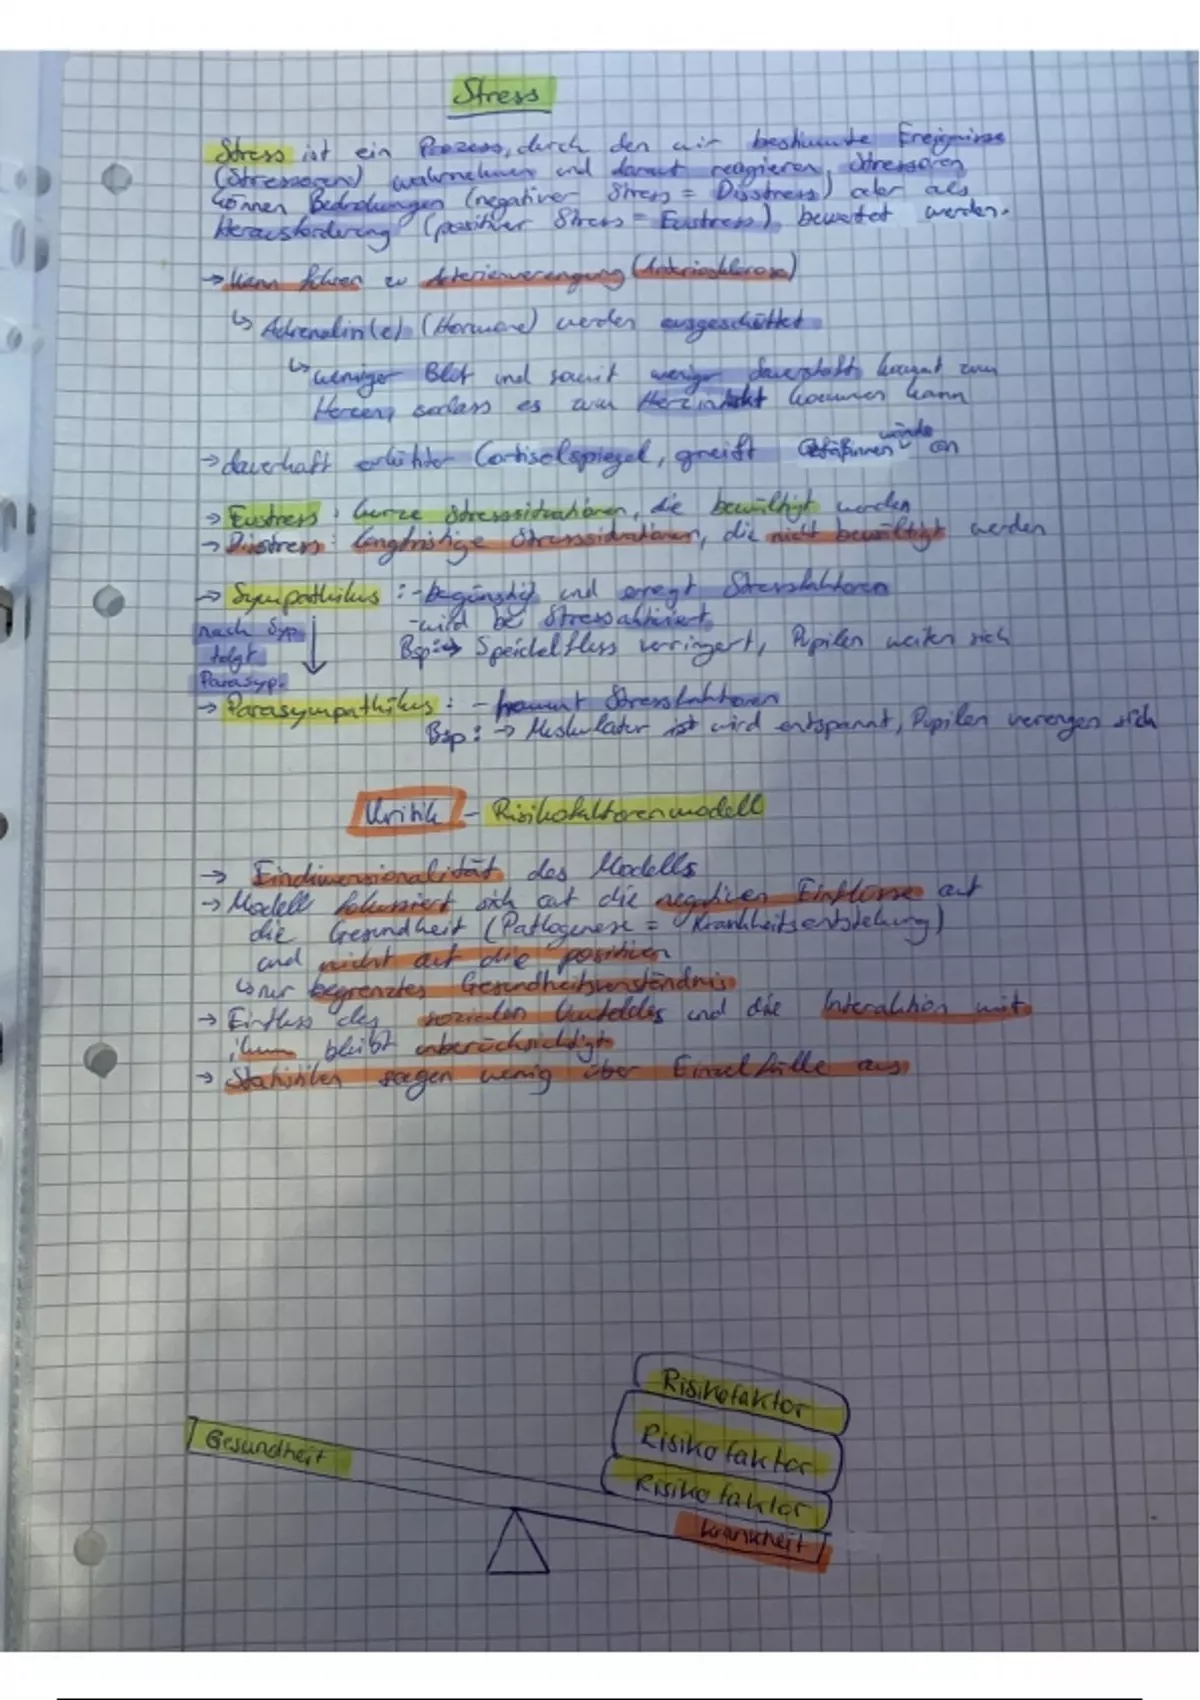 Stress
Stress ist ein Prozess, durch den wir bestimmte Ereignisse
(Stressoren) wahrnehmen und darauf reagieren. Stressoren
können Bedrohungen (negativer Stress = Disstress) oder als
Herausforderung (positiver Stress = Eustress) bewertet werden.
→ kann führen zu Arterienverengung (Arteriosklerose)
↳ Adrenalin(e) (Hormone) werden ausgeschüttet
↳ weniger Blut und somit weniger Sauerstoff kommt zum
Herzen, sodass es zum Herzinfarkt kommen kann
→ dauerhaft erhöhter Cortisolspiegel, greift Gefäßinnenwände an
→ Eustress: kurze Stresssituationen, die bewältigt werden
→ Disstress: langfristige Stresssituationen, die nicht bewältigt werden
→ Sympathikus: - begünstigt und erregt Stressfaktoren
- wird bei Stress aktiviert
Bsp: → Speichelfluss verringert, Pupillen weiten sich
nach Syp.
folgt
Parasyp.
→ Parasympathikus: - hemmt Stressfaktoren
Bsp: → Muskulatur wird entspannt, Pupillen verengen sich
Kritik - Risikofaktorenmodell
→ Eindimensionalität des Modells
→ Modell fokussiert sich auf die negativen Einflüsse auf
die Gesundheit (Pathogenese = Krankheitsentstehung)
und nicht auf die positiven
↳ nur begrenztes Gesundheitsverständnis
→ Einfluss des sozialen Umfeldes und die Interaktion mit
ihm bleibt unberücksichtigt
→ Statistiken sagen wenig über Einzelfälle aus
Risikofaktor
Risikofaktor
Risikofaktor
Gesundheit
Krankheit